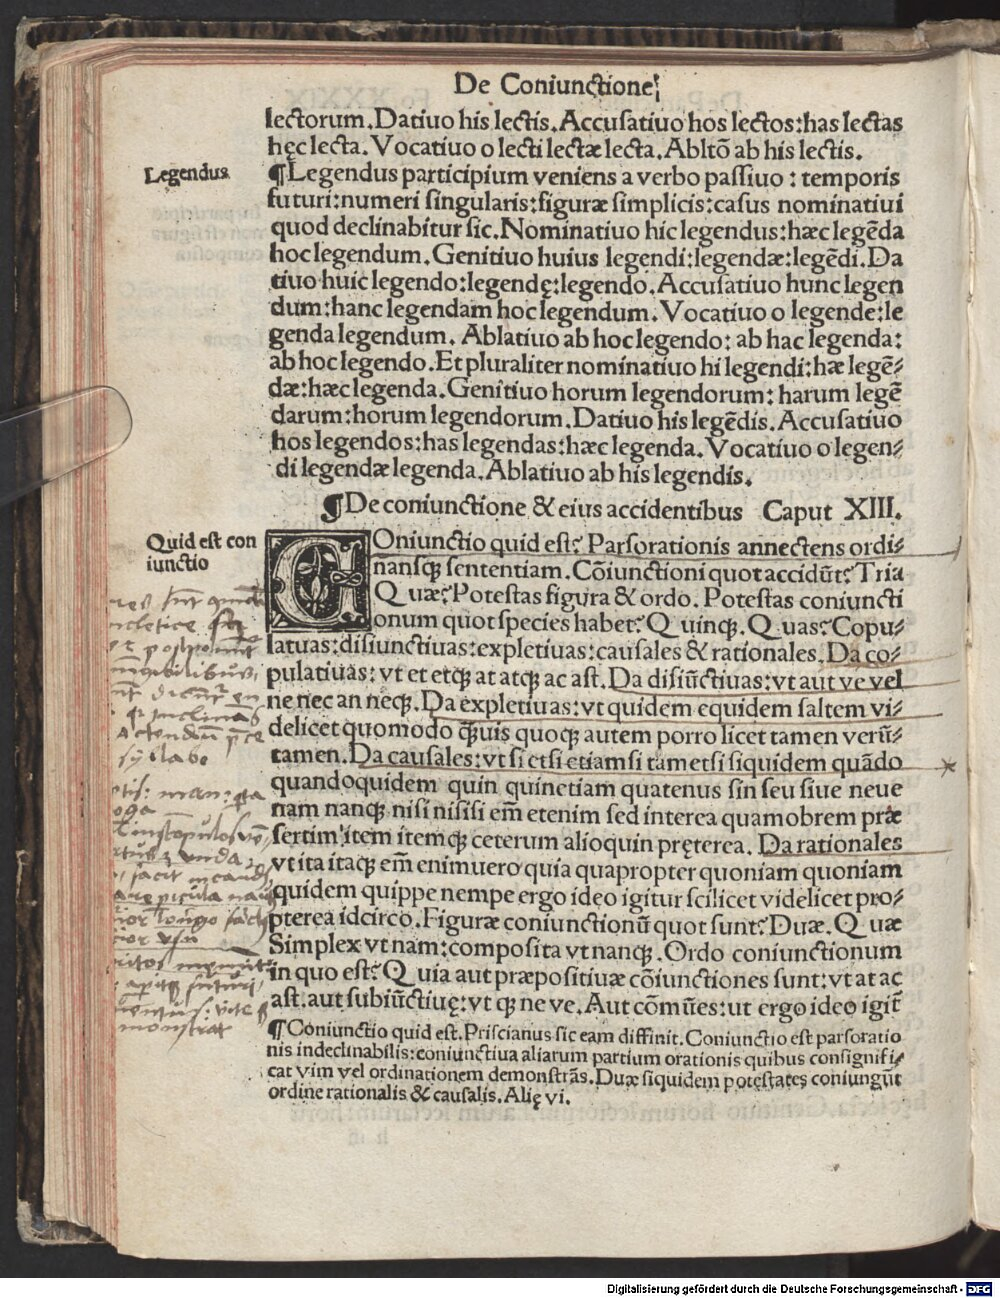 De Coniunctione
lectorum. Datiuo his lectis. Accusatiuo hos lectos: has lectas
hęc lecta. Vocatiuo o lecti lectæ lecta. Abltõ ab his lectis.
Legendus
¶Legendus participium veniens a verbo passiuo : temporis
futuri: numeri singularis: figuræ simplicis: casus nominatiui
quod declinabitur sic. Nominatiuo hic legendus: hæc legẽda
hoc legendum. Genitiuo huius legendi: legendæ: legẽdi. Da
tiuo huic legendo: legendę: legendo. Accusatiuo hunc legen
dum: hanc legendam hoc legendum. Vocatiuo o legende: le
genda legendum. Ablatiuo ab hoc legendo: ab hac legenda:
ab hoc legendo. Et pluraliter nominatiuo hi legendi: hæ legẽ⸗
dæ: hæc legenda. Genitiuo horum legendorum: harum legẽ
darum: horum legendorum. Datiuo his legẽdis. Accusatiuo
hos legendos: has legendas: hæc legenda. Vocatiuo o legen⸗
di legendæ legenda. Ablatiuo ab his legendis.
¶De coniunctione & eius accidentibus Caput XIII.
Quid est con
iunctio
COniunctio quid est? Pars orationis annectens ordi⸗
nansq̃ sententiam. Cõiunctioni quot accidũt? Tria
Quæ? Potestas figura & ordo. Potestas coniuncti
onum quot species habet? Quinq̃. Quas? Copu⸗
latiuas: disiunctiuas: expletiuas: causales & rationales. Da co⸗
pulatiuas: vt et etq̃ at atq̃ ac ast. Da disiũctiuas: vt aut ve vel
ne nec an neq̃. Da expletiuas: vt quidem equidem saltem vi⸗
delicet quomodo q̃uis quoq̃ autem porro licet tamen verũ⸗
tamen. Da causales: vt si etsi etiamsi tametsi siquidem quãdo
quandoquidem quin quinetiam quatenus sin seu siue neue
nam nanq̃ nisi nisisi em̃ etenim sed interea quamobrem præ
sertim item itemq̃ ceterum alioquin pręterea. Da rationales
vt ita itaq̃ em̃ enimuero quia quapropter quoniam quoniam
quidem quippe nempe ergo ideo igitur scilicet videlicet pro⸗
pterea idcirco. Figuræ coniunctionũ quot sunt? Duæ. Quæ
Simplex vt nam: composita vt nanq̃. Ordo coniunctionum
in quo est? Quia aut præpositiuæ cõiunctiones sunt: vt at ac
ast. aut subiũctiuę: vt q̃ ne ve. Aut cõmũes: ut ergo ideo igit̃
¶Coniunctio quid est. Priscianus sic eam diffinit. Coniunctio est pars oratio
nis indeclinabilis: coniunctiua aliarum partium orationis quibus consignifi⸗
cat vim vel ordinationem demonstrãs. Duæ siquidem potęstates coniungũt
ordine rationalis & causalis. Alię vi.
syllabe
monstrat
Digitalisierung gefördert durch die Deutsche Forschungsgemeinschaft - DFG